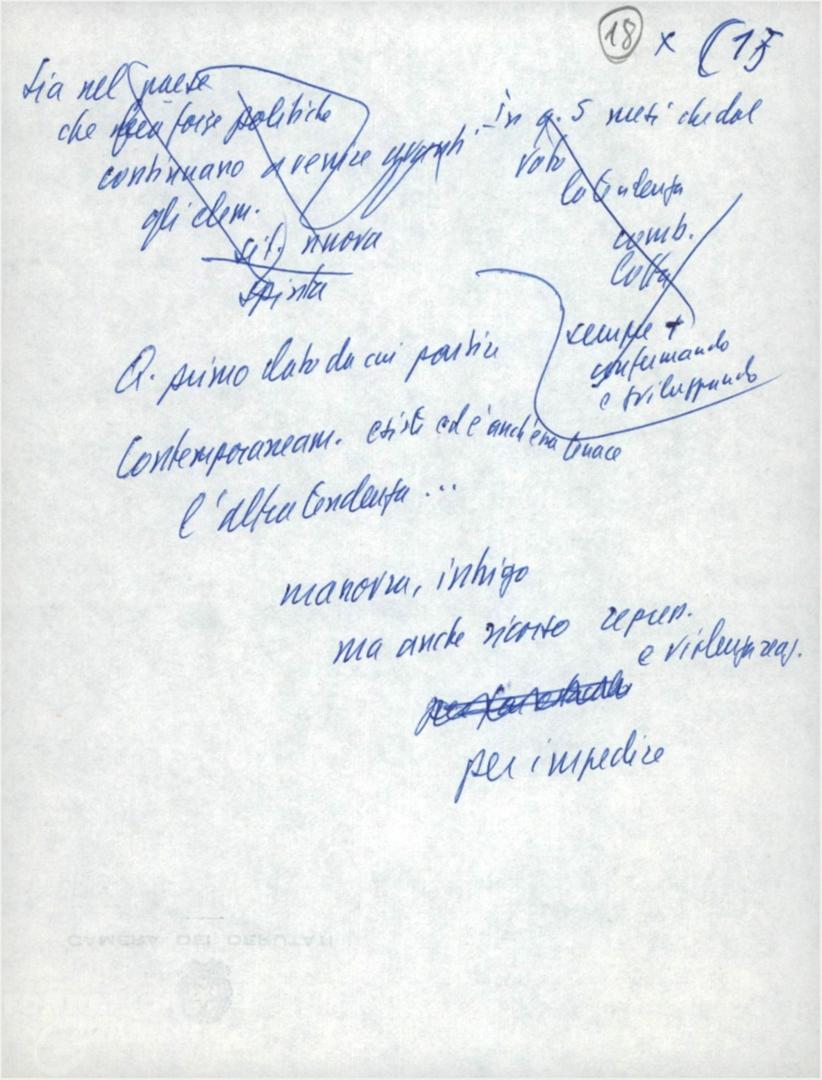 18 x (17
sia nel paese
che nelle forze politiche
continuano a venire avanti
gli elem.
sit. nuova
spinta
in q. 5 mesi che dal
voto
la tendenza
comb.
lotta
sempre +
confermando
e sviluppando
Q. primo dato da cui partire
Contemporaneam. esiste ed è anch'essa tenace
l'altra tendenza ...
manovra, intrigo
ma anche ricorso repress.
e violenza reaz.
per impedire
CAMERA DEI DEPUTATI